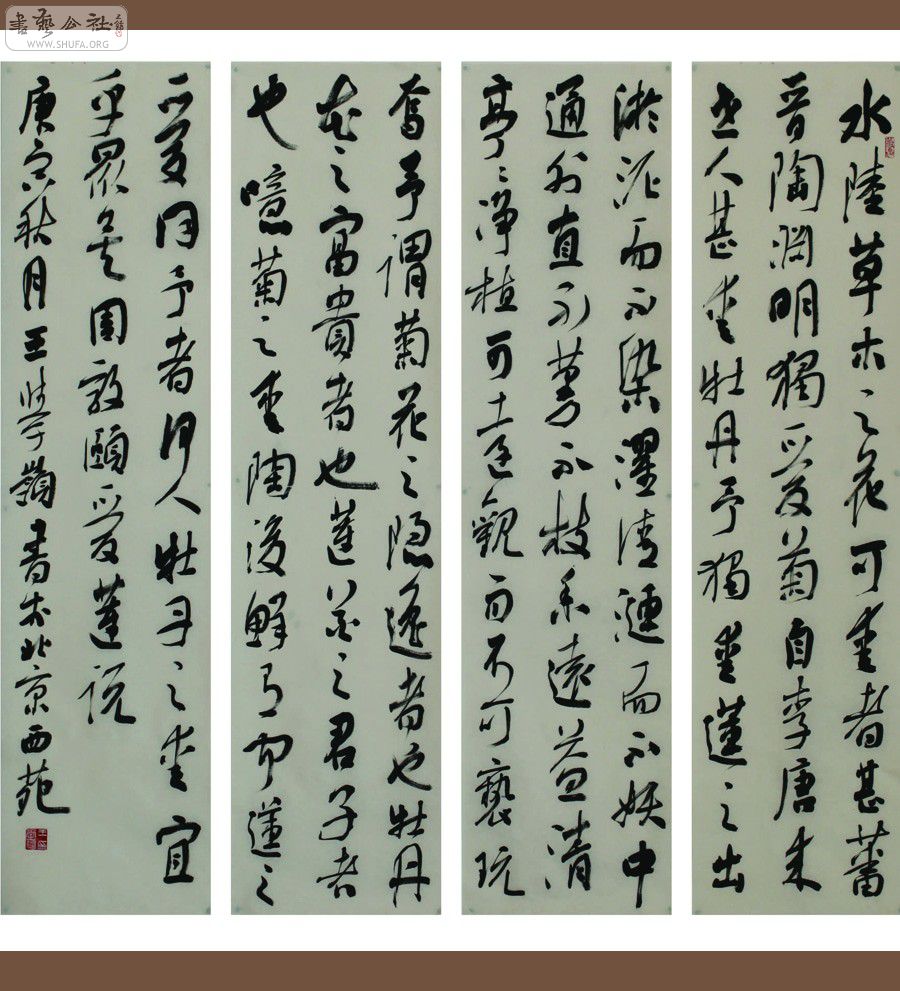 書藝公社
WWW.SHUFA.ORG
水陸草木之花可愛者甚蕃
晉陶渊明獨爱菊自李唐来
世人甚愛牡丹予獨愛蓮之出
淤泥而不染濯清漣而不妖中
通外直不蔓不枝香遠益清
亭〻淨植可遠觀而不可褻玩
焉予謂菊花之隐逸者也牡丹
花之富貴者也蓮花之君子者
也噫菊之愛陶後鮮有聞蓮之
爱同予者何人牡丹之愛宜
乎眾矣周敦頤爱蓮説
庚寅秋月王學嶺書於北京西苑